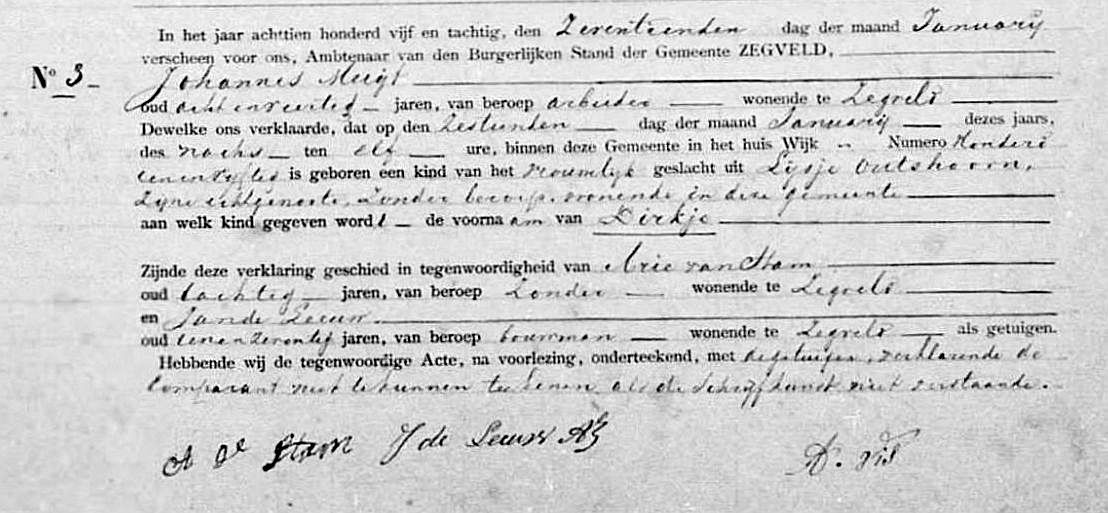 In het jaar achttien honderd vijf en tachtig, den Zeventienden dag der maand Januarij
verscheen voor ons, Ambtenaar van den Burgerlijken Stand der Gemeente ZEGVELD,
No 3 Johannes
oud jaren, van beroep arbeider wonende te Zegveld
Dewelke ons verklaarde, dat op den Zestienden dag der maand Januarij dezes jaars,
des nachs ten elf ure, binnen deze Gemeente in het huis Wijk „ Numero Honderd
een en vijftig is geboren een kind van het vrouwlijk geslacht uit Lijsje Outshoorn,
Zijne echtgenoote, Zonder beroep, wonende in deze gemeente
aan welk kind gegeven wordt de voornaam van Dirkje
Zijnde deze verklaring geschied in tegenwoordigheid van Arie van Stam
oud tachtig jaren, van beroep Zonder wonende te Zegveld
en Jan de Leeuw
oud eenenzeventig jaren, van beroep bouwman wonende te Zegveld als getuigen.
Hebbende wij de tegenwoordige Acte, na voorlezing, onderteekend, met de getuigen, verklarende de
Comparant niet te kunnen teekenen als de Schrijfkunst niet verstaande.
A Stam J de Leeuw Az
D. Vis